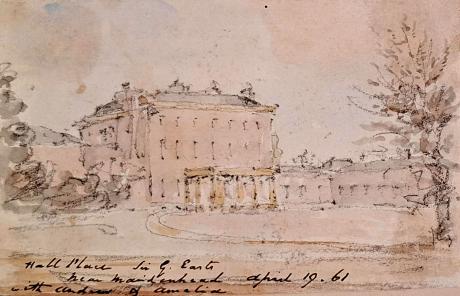 Hall Place Sir G. Easts
Near Maidenhead April 19. 61
with Andrew & Amelia